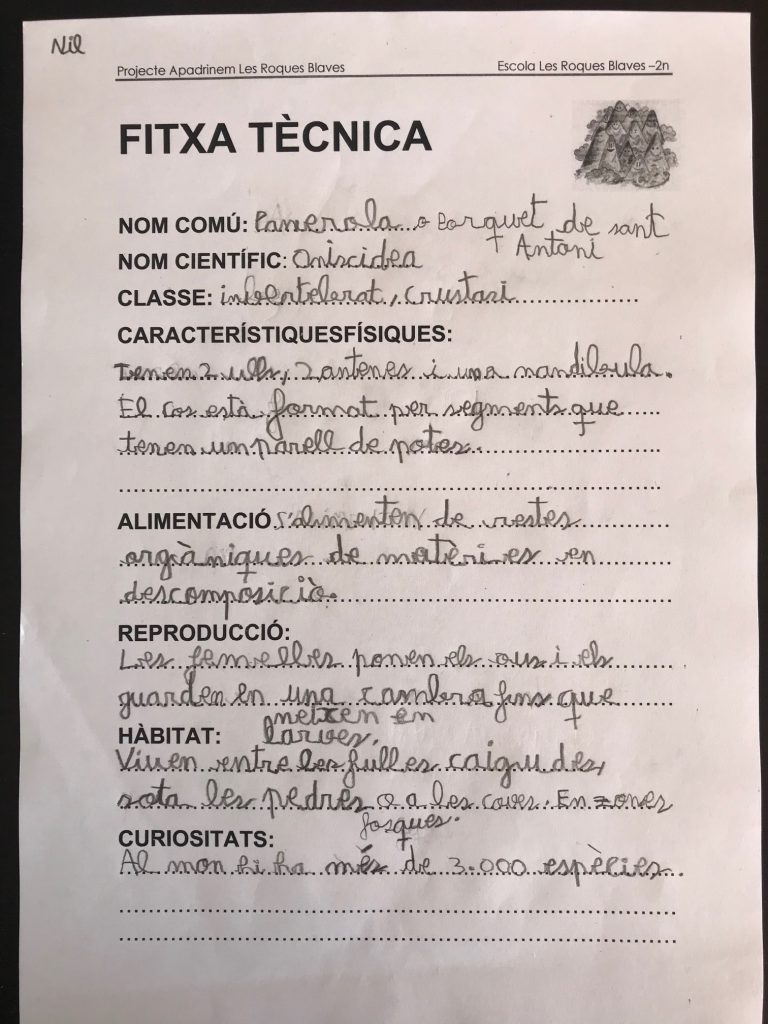 Nil
Projecte Apadrinem Les Roques Blaves Escola Les Roques Blaves –2n
FITXA TÈCNICA
NOM COMÚ: Panerola o Porquet de sant
Antoni
NOM CIENTÍFIC: Oniscidea
CLASSE: inbertebrat, crustasi
CARACTERÍSTIQUESFÍSIQUES:
Tenen 2 ulls, 2 antenes i una mandíbula.
El cos està format per segments que
tenen un parell de potes.
ALIMENTACIÓ S'alimenten de restes
orgàniques de matèries en
descomposició.
REPRODUCCIÓ:
Les femelles ponen els ous i els
guarden en una cambra fins que
neixen en
larves.
HÀBITAT:
Viuen entre les fulles caigudes,
sota les pedres o a les coves. En zones
fosques.
CURIOSITATS:
Al mon hi ha més de 3.000 espècies.